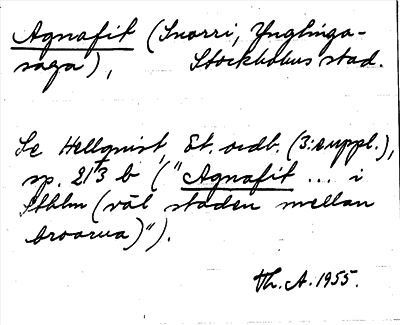 Agnafit (Snorri, Ynglinga-
saga), Stockholms stad.
Se Hellquist, Et. ordb. (3:e uppl.),
sp. 213 b ("Agnafit ... i
Sthlm (väl staden mellan
broarna)").
Th. A. 1955.